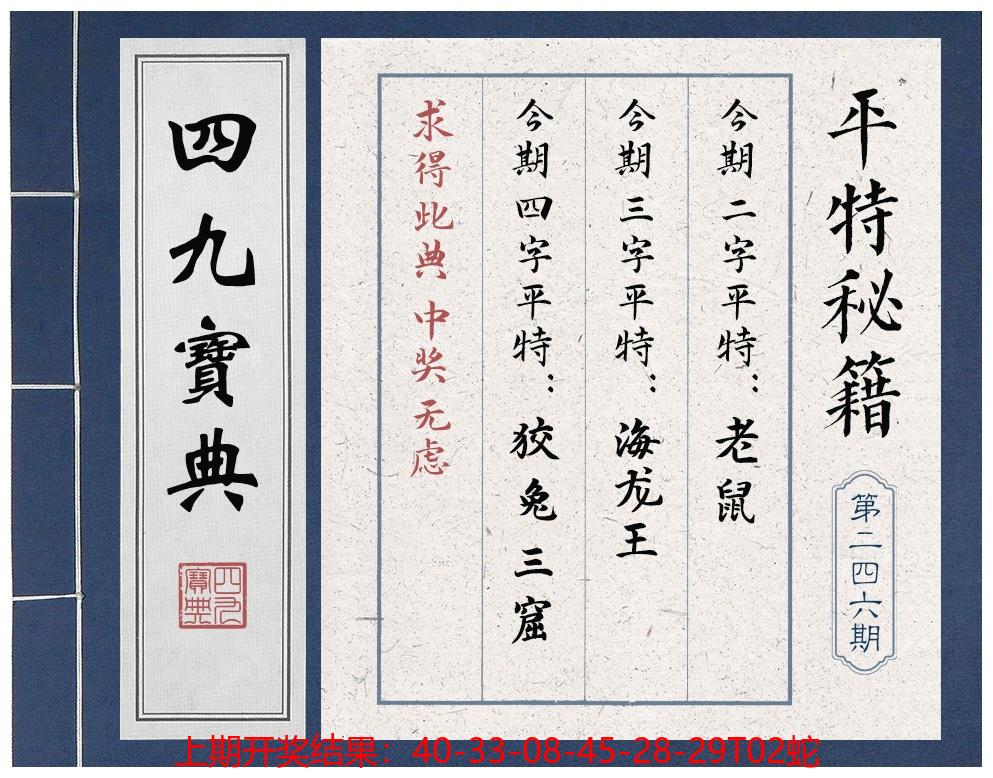 平特秘籍
第二四六期
今期二字平特：老鼠
今期三字平特：海龙王
今期四字平特：狡兔三窟
求得此典 中奖无虑
四九寶典
四九寶典
上期开奖结果：40-33-08-45-28-29T02蛇